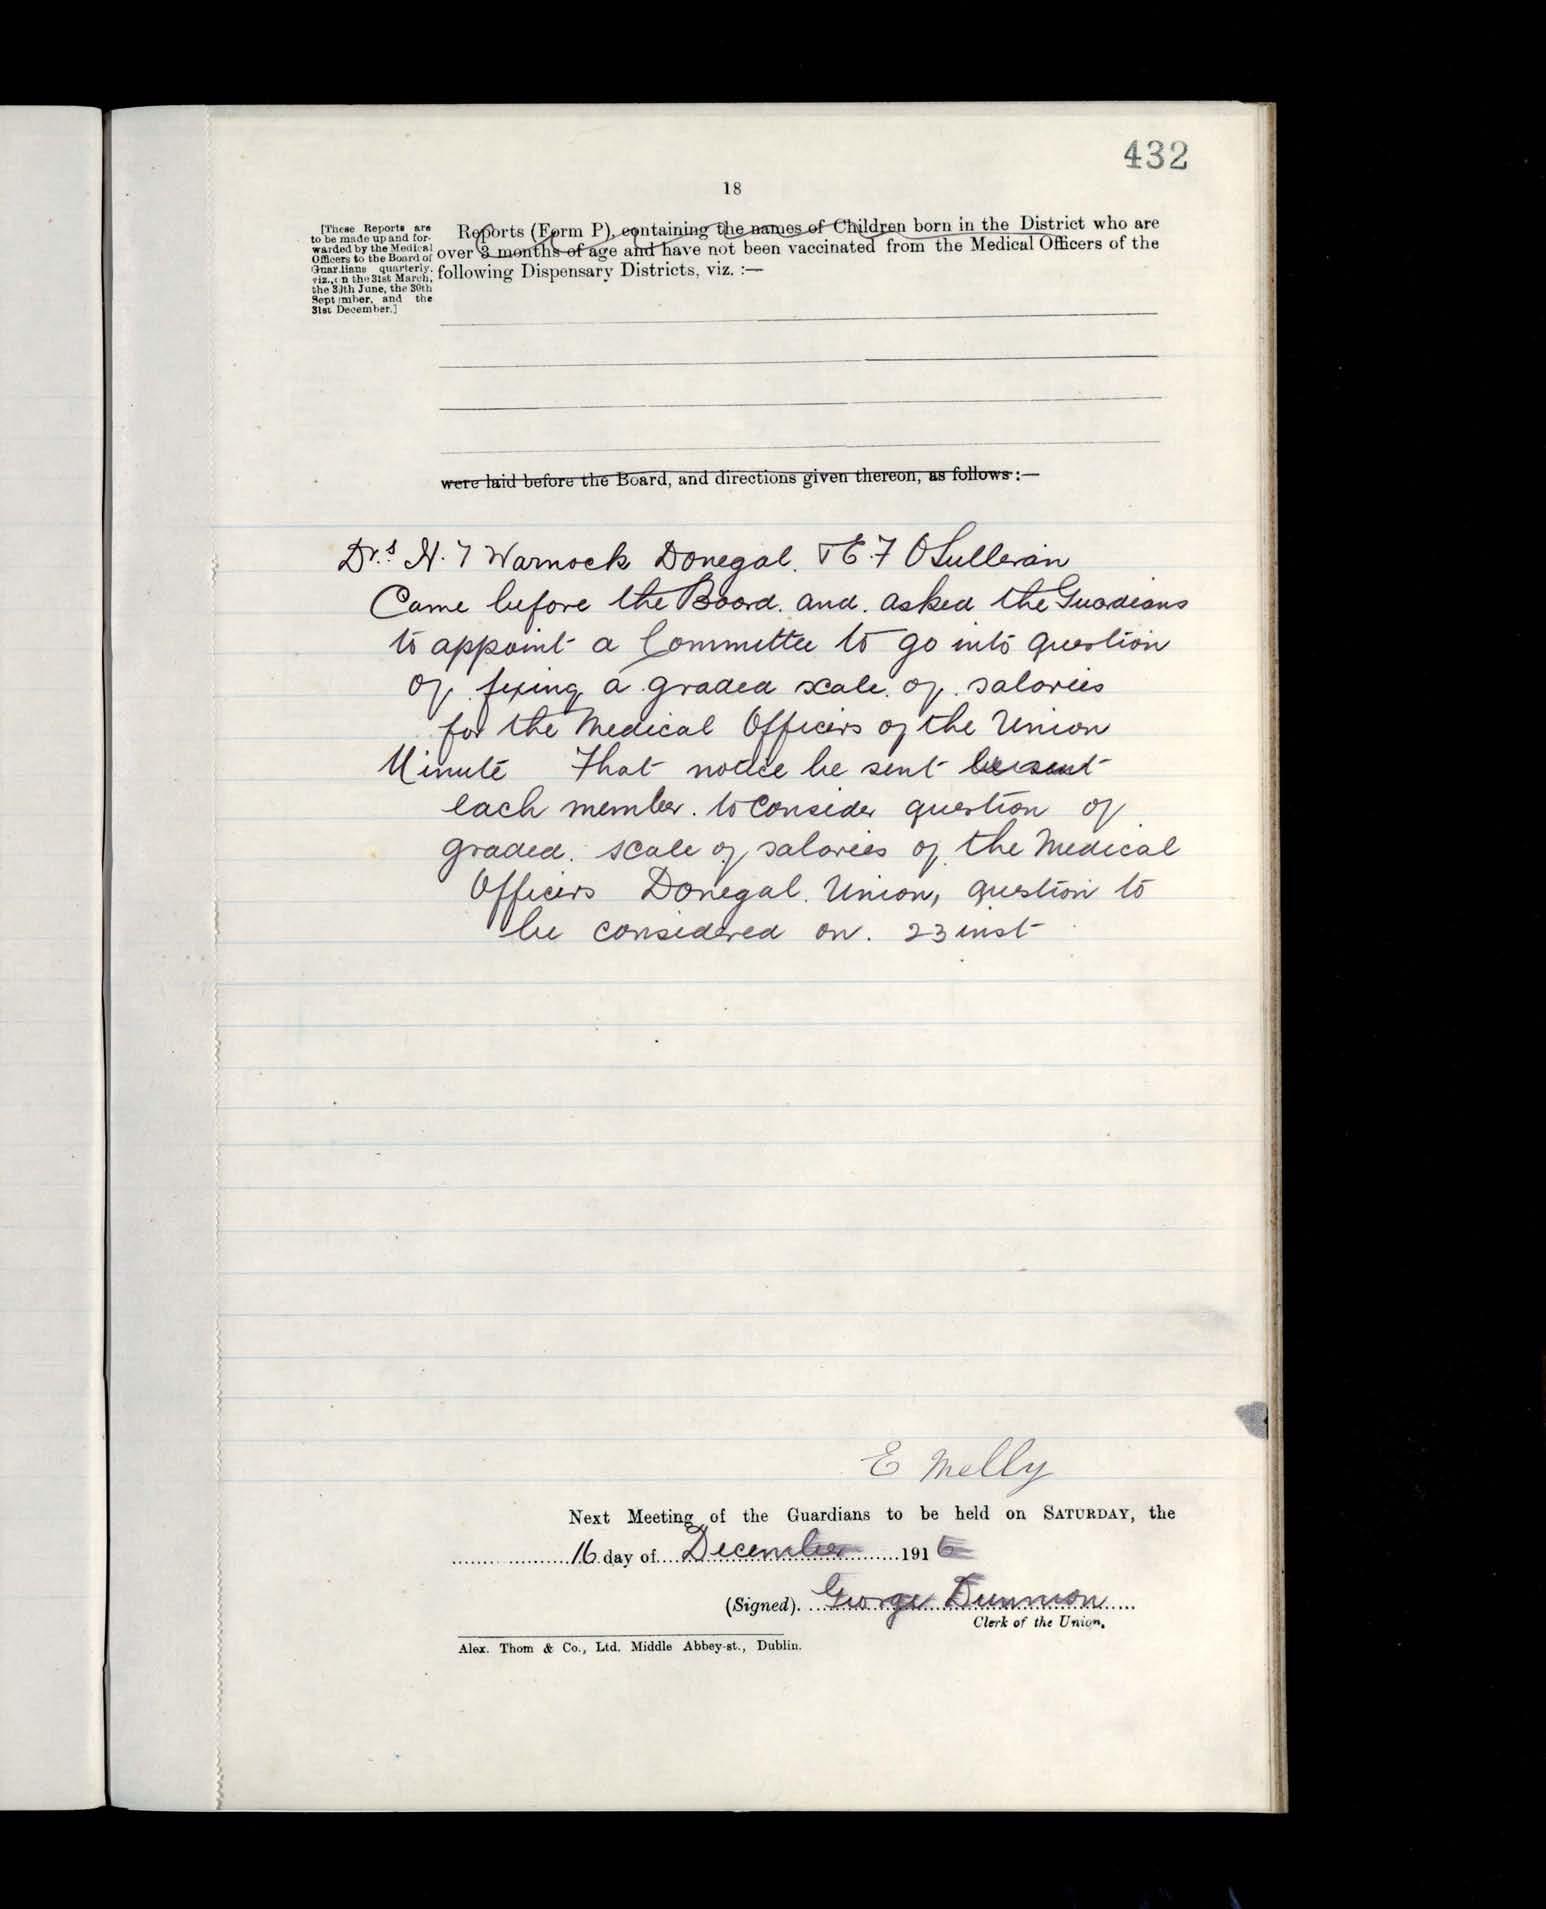 432
18
[These Reports are
to be made up and for-
warded by the Medical
Officers to the Board of
Guardians quarterly.
viz., on the 31st March,
the 30th June, the 30th
September, and the
31st December.]
Reports (Form P), containing the names of Children born in the District who are
over 3 months of age and have not been vaccinated from the Medical Officers of the
following Dispensary Districts, viz. :—
were laid before the Board, and directions given thereon, as follows :—
Dr.s H. T Warnock Donegal. & E. F OSullivan
Came before the Board. and. asked the Guardians
to appoint a Committee to go into question
of fixing a graded scale of salaries
for the Medical Officers of the Union
Minute That notice be sent be sent
each member. to Consider question of
graded. scale of salaries of the Medical
Officers Donegal. Union, question to
be considered on. 23 inst
E Melly
Next Meeting of the Guardians to be held on SATURDAY, the
16 day of December 1916
(Signed). George Dunnion
Clerk of the Union.
Alex. Thom & Co., Ltd. Middle Abbey-st., Dublin.